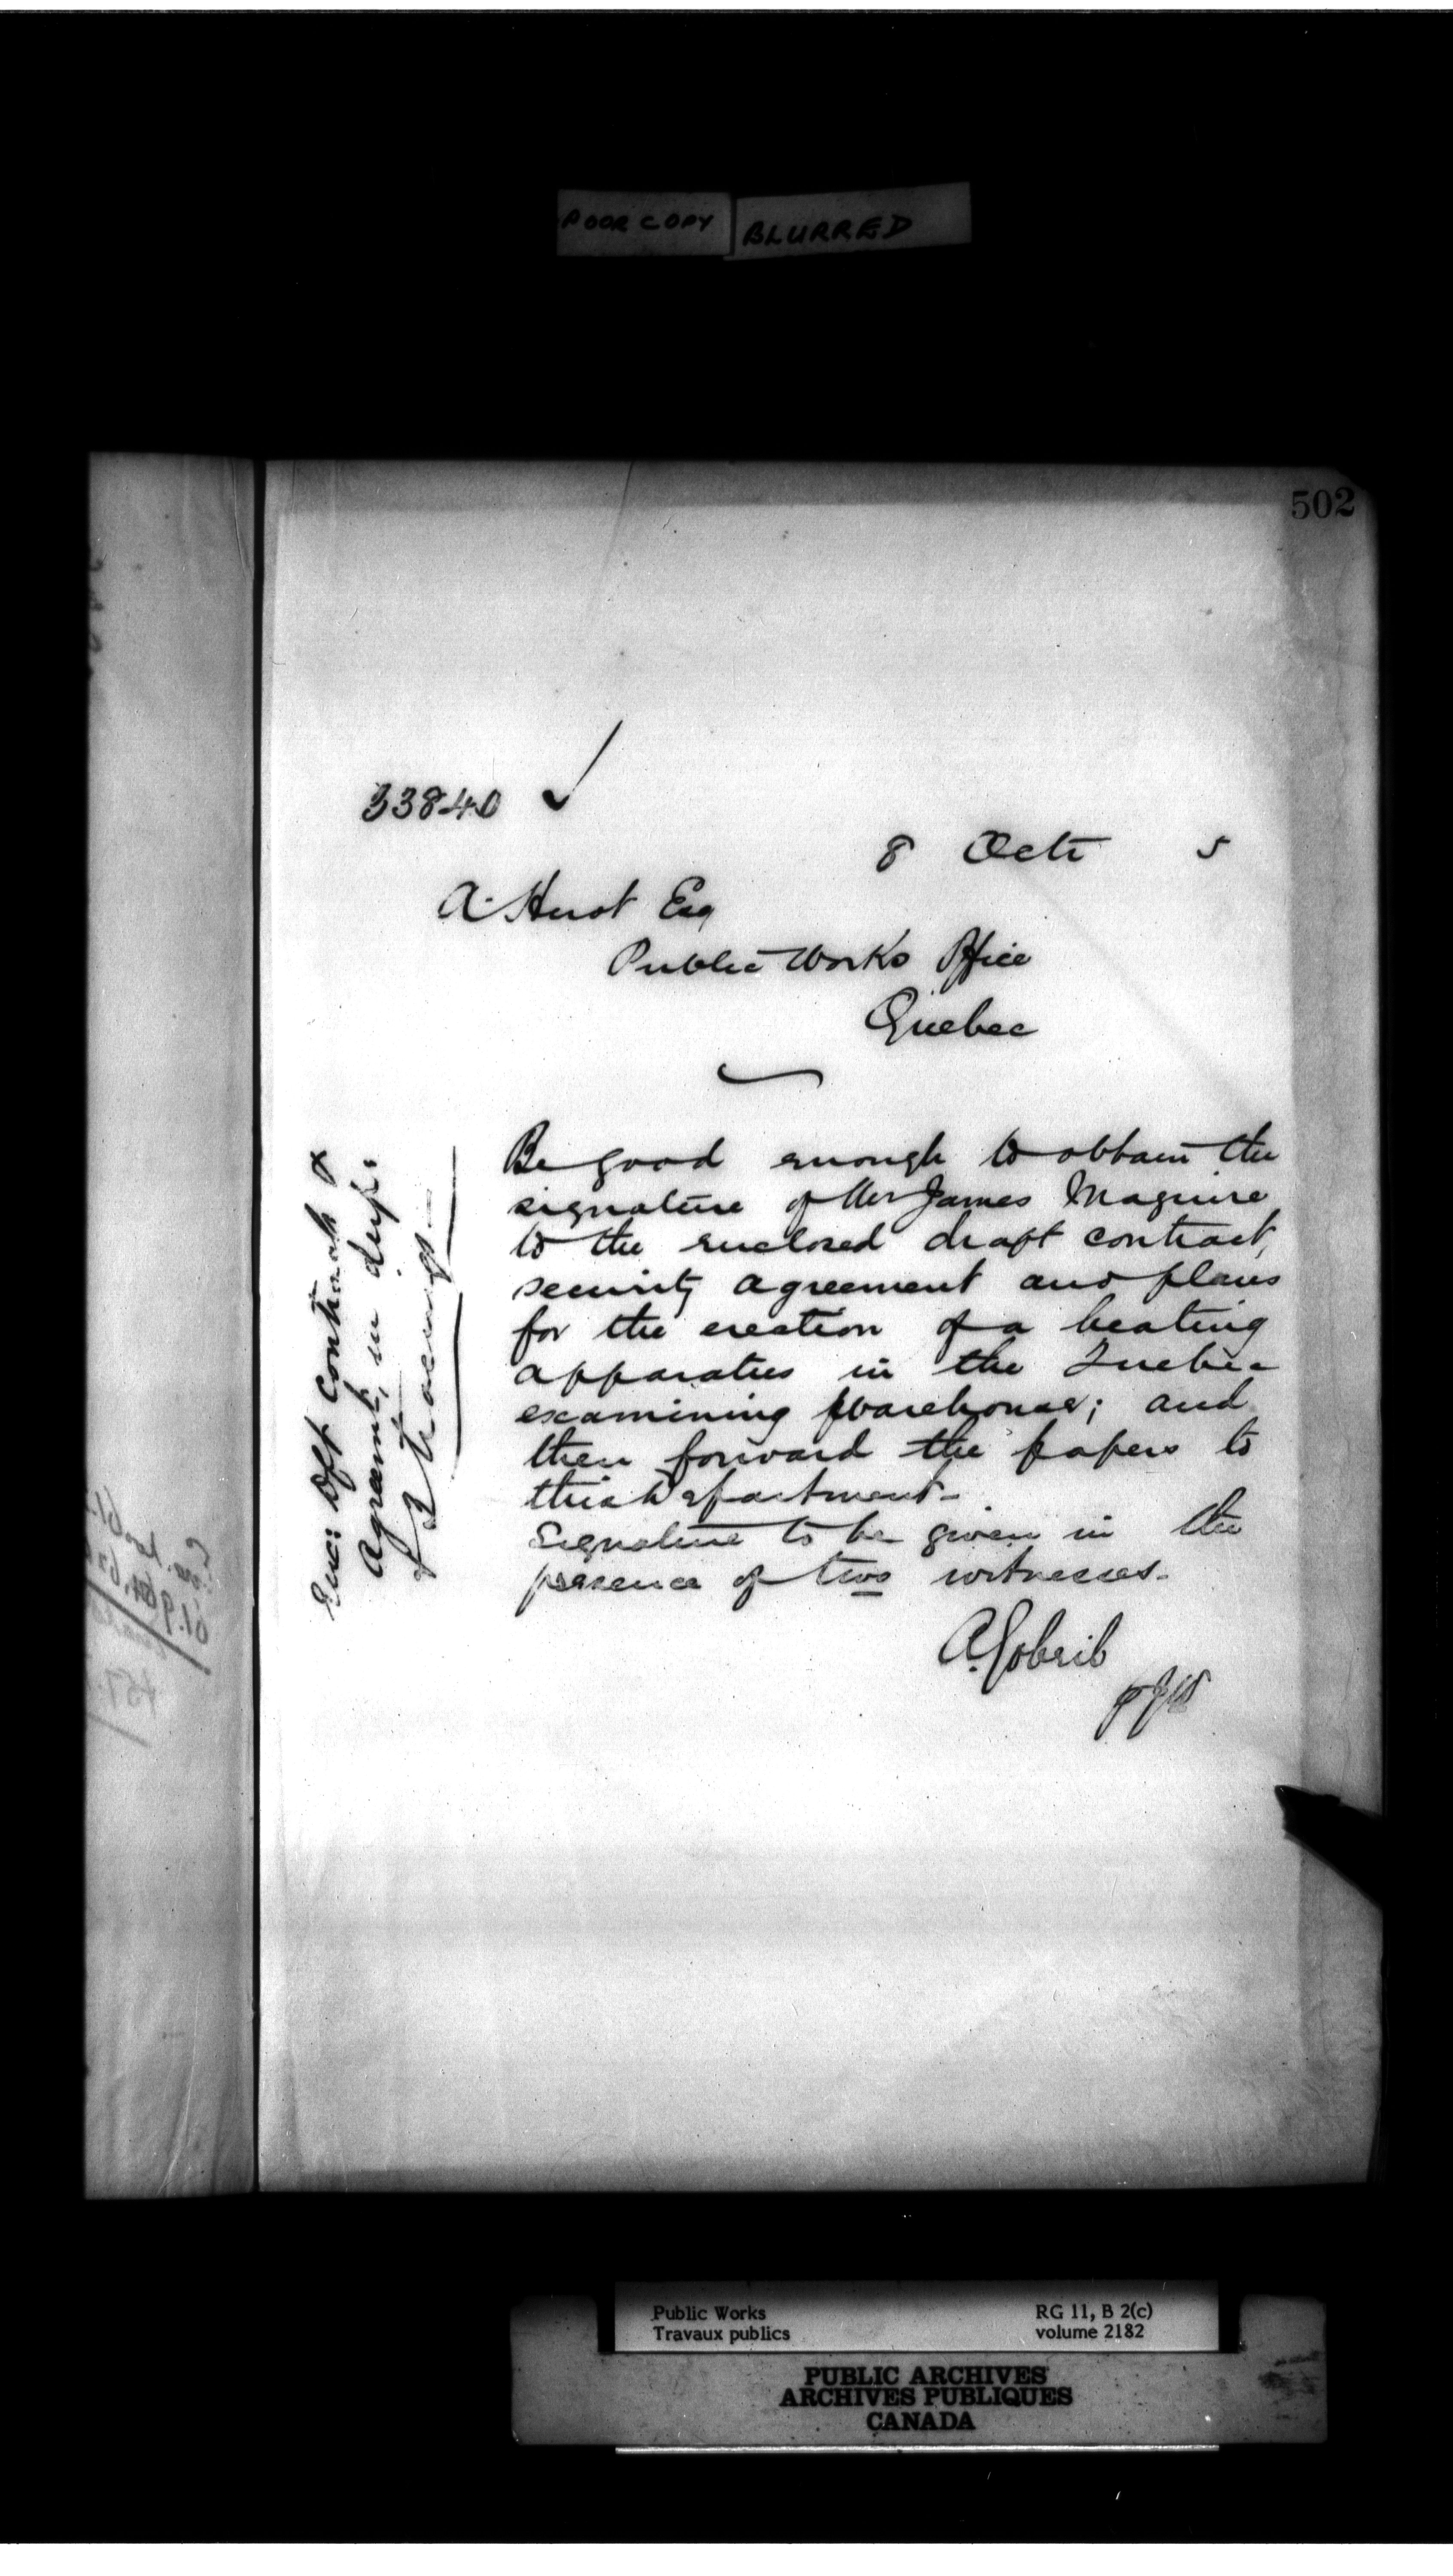 POOR COPY BLURRED
502
33840
8 Octr 5
A. Huot Esq
Public Works Office
Quebec
Be good enough to obtain the
signature of Mr James Maguire
to the enclosed draft contract,
security agreement and plans
for the erection of a heating
apparatus in the Quebec
examining warehouse; and
then forward the papers to
this Department-
Signature to be given in the
presence of two witnesses.
A. Gobeil
Enc: Dft Contract &
Agreemt, in dup:
& 3 tracings
Public Works
Travaux publics
RG 11, B 2(c)
volume 2182
PUBLIC ARCHIVES
ARCHIVES PUBLIQUES
CANADA